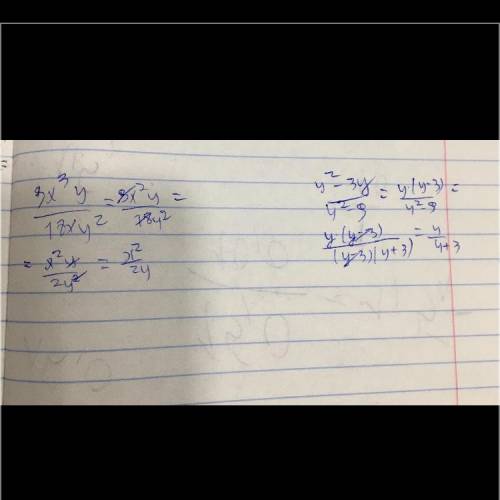 9x³y / 18xy² = 9x²y / 18y² =
= x²y / 2y² = x² / 2y
y² - 3y / y² - 9 = y(y-3) / y² - 9 =
y(y-3) / (y-3)(y+3) = y / y+3